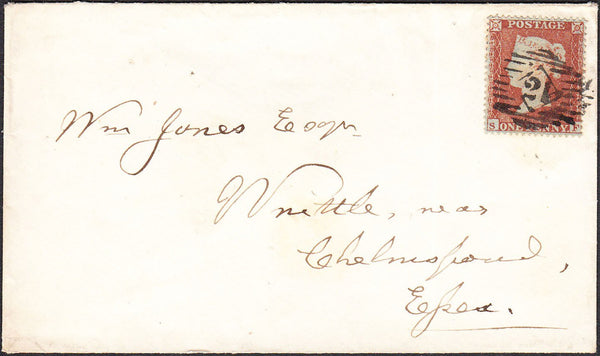 POSTAGE
S ONE PENNY F
72
Wm Jones Esqr
Writtle, near
Chelmsford,
Essex.